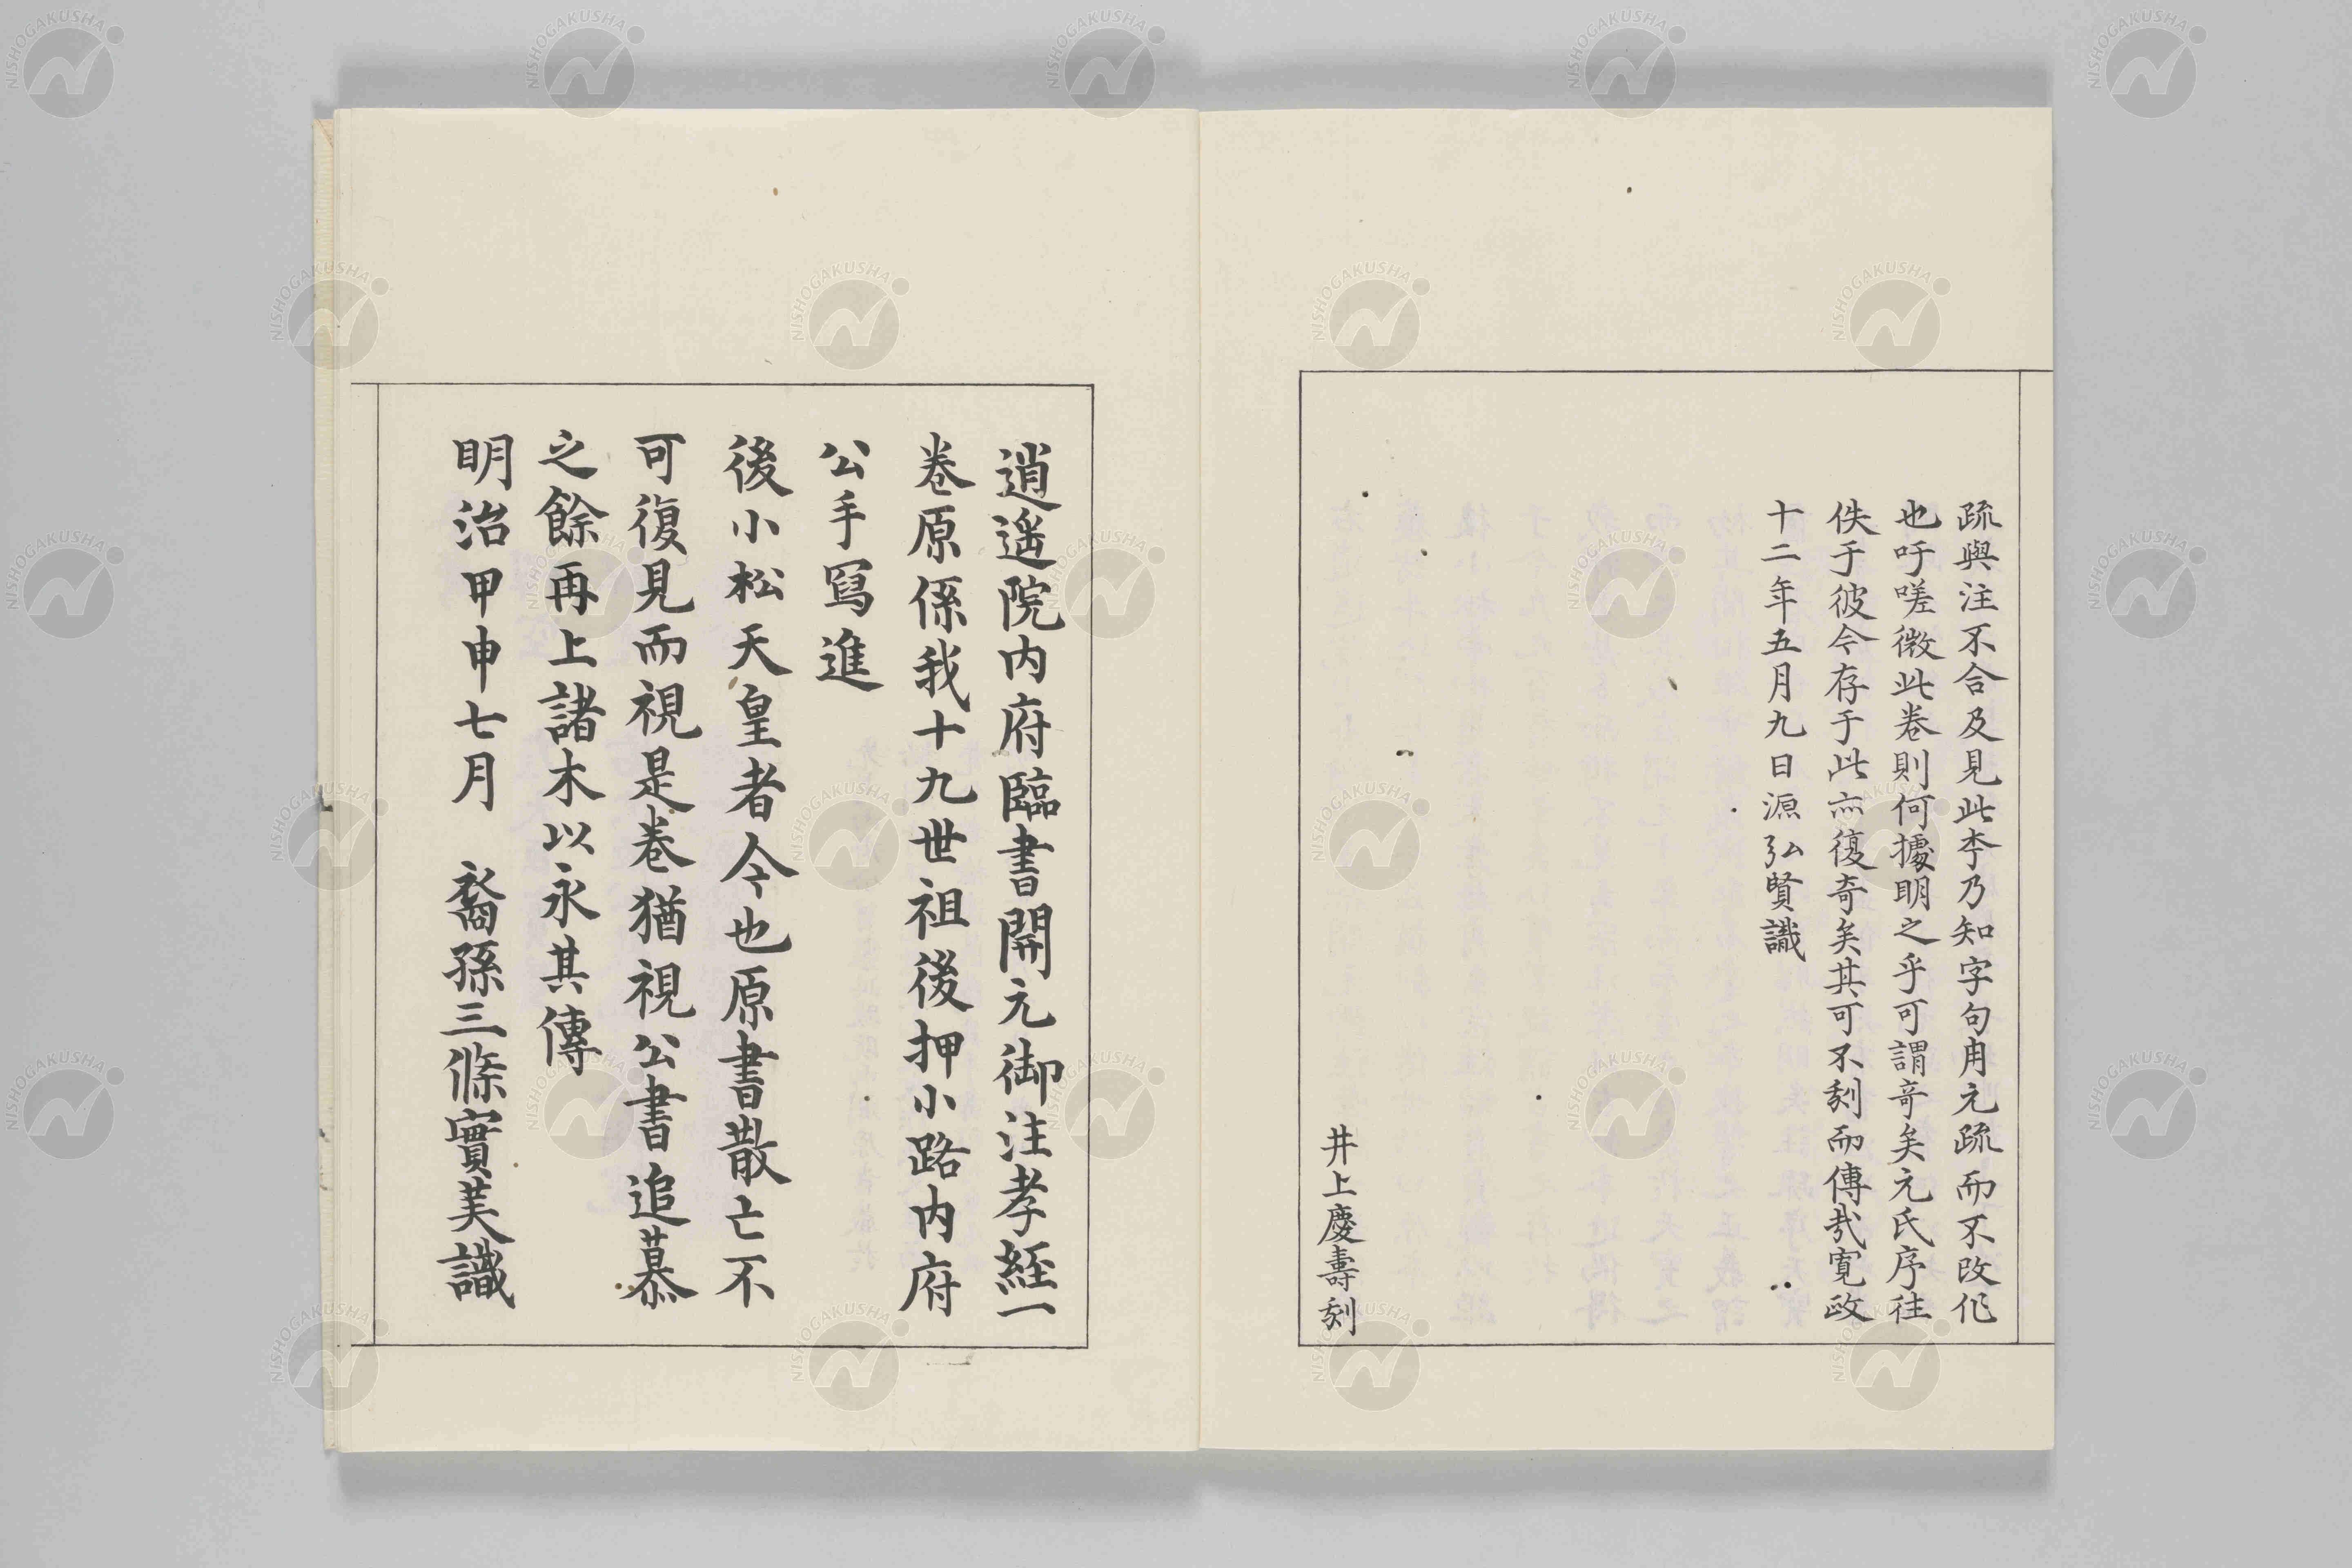 疏與注不合及見此本乃知字句用元疏而不改作
也吁嗟微此卷則何據明之乎可謂奇矣元氏序往
佚于彼今存于此亦復奇矣其可不刻而傳哉寛政
十二年五月九日源弘賢識
井上慶壽刻
逍遥院内府臨書開元御注孝經一
卷原係我十九世祖後押小路内府
公手寫進
後小松天皇者今也原書散亡不
可復見而視是卷猶視公書追慕
之餘再上諸木以永其傳
明治甲申七月　裔孫三條實美識